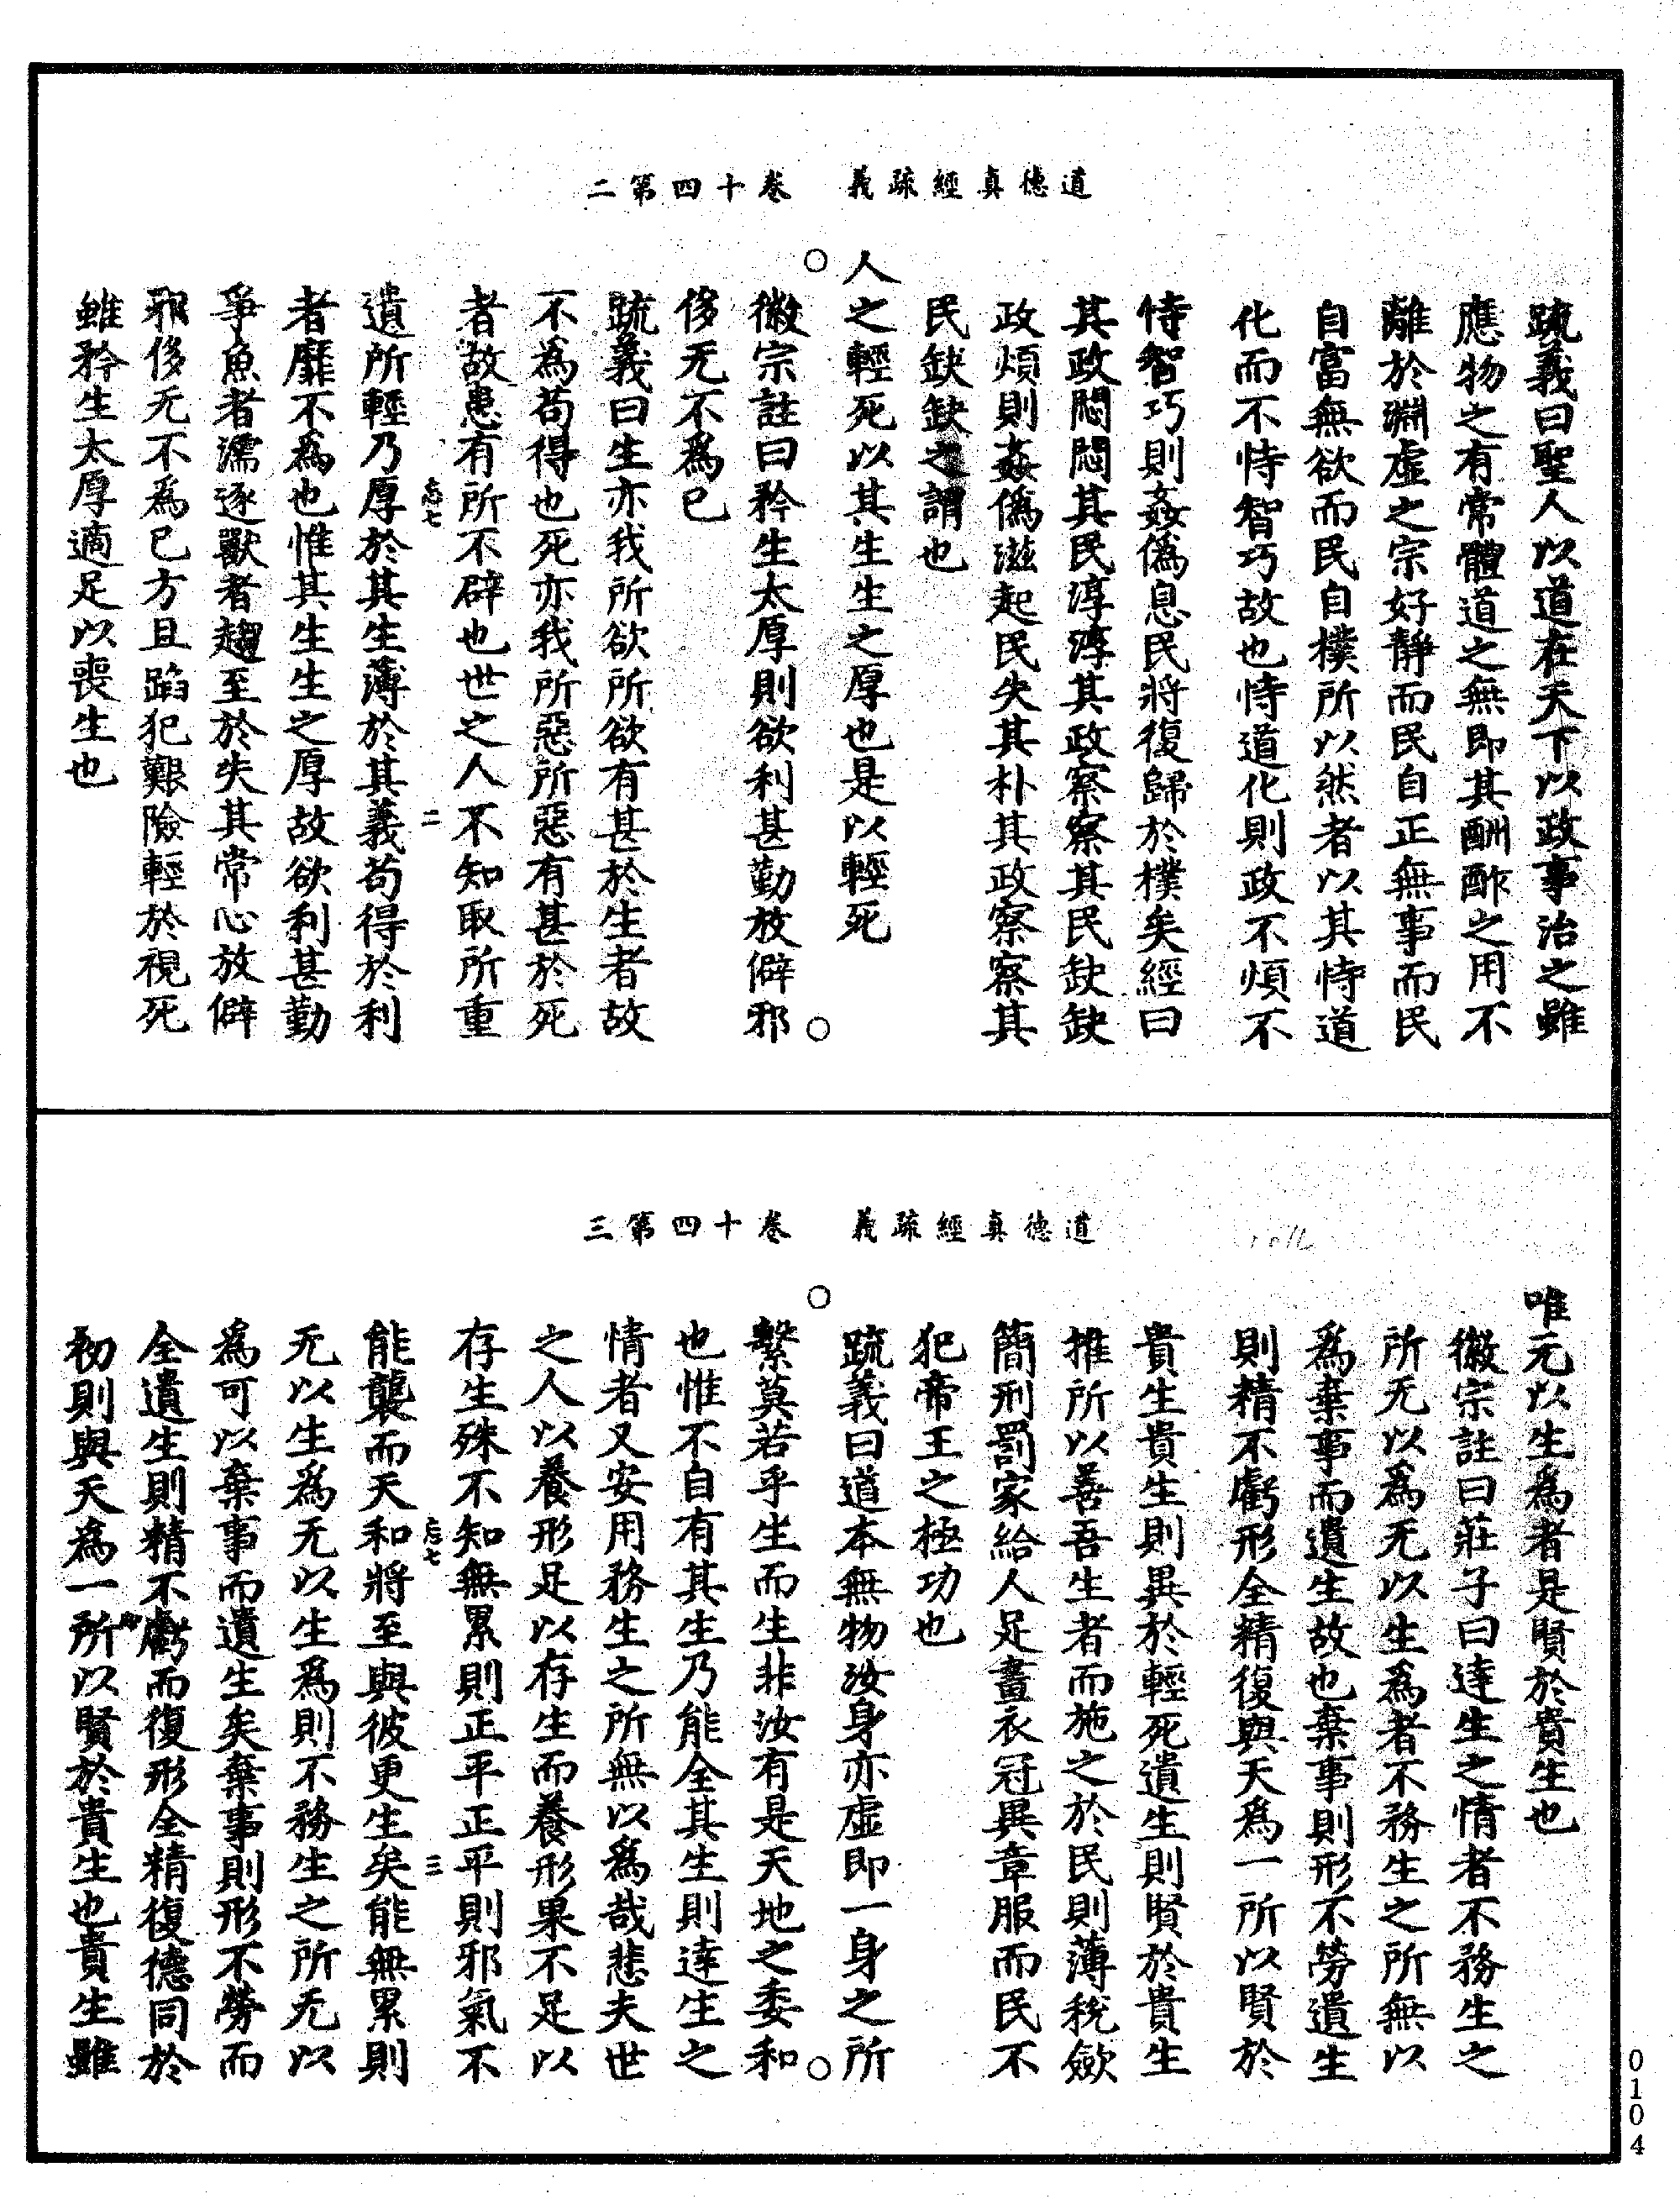 道德真經疏義　卷十四第二
疏義曰聖人以道在天下以政事治之雖
應物之有常體道之無即其酬酢之用不
離於淵虛之宗好靜而民自正無事而民
自富無欲而民自樸所以然者以其恃道
化而不恃智巧故也恃道化則政不煩不
恃智巧則姦偽息民將復歸於樸矣經曰
其政悶悶其民淳淳其政察察其民缺缺
政煩則姦偽滋起民失其朴其政察察其
民缺缺之謂也
人之輕死以其生生之厚也是以輕死
徽宗註曰矜生太厚則欲利甚勤放僻邪
侈无不爲已
疏義曰生亦我所欲所欲有甚於生者故
不為苟得也死亦我所惡所惡有甚於死
者故患有所不辟也世之人不知取所重
遺所輕乃厚於其生薄於其義苟得於利
志七　二
者靡不爲也惟其生生之厚故欲利甚勤
爭魚者濡逐獸者趨至於失其常心放僻
邪侈无不為已方且蹈犯艱險輕於視死
雖矜生太厚適足以喪生也
道德真經疏義　卷十四第三
唯无以生爲者是賢於貴生也
徽宗註曰莊子曰達生之情者不務生之
所无以爲无以生爲者不務生之所無以
爲棄事而遺生故也棄事則形不勞遺生
則精不虧形全精復與天爲一所以賢於
貴生貴生則異於輕死遺生則賢於貴生
推所以善吾生者而施之於民則薄稅歛
簡刑罰家給人足畫衣冠異章服而民不
犯帝王之極功也
疏義曰道本無物汝身亦虛即一身之所
繫莫若乎生而生非汝有是天地之委和
也惟不自有其生乃能全其生則達生之
情者又安用務生之所無以爲哉悲夫世
之人以養形足以存生而養形果不足以
存生殊不知無累則正平正平則邪氣不
能襲而天和將至與彼更生矣能無累則
志七　三
无以生爲无以生爲則不務生之所无以
為可以棄事而遺生矣棄事則形不勞而
全遺生則精不虧而復形全精復德同於
初則與天為一所以賢於貴生也貴生雖
0104